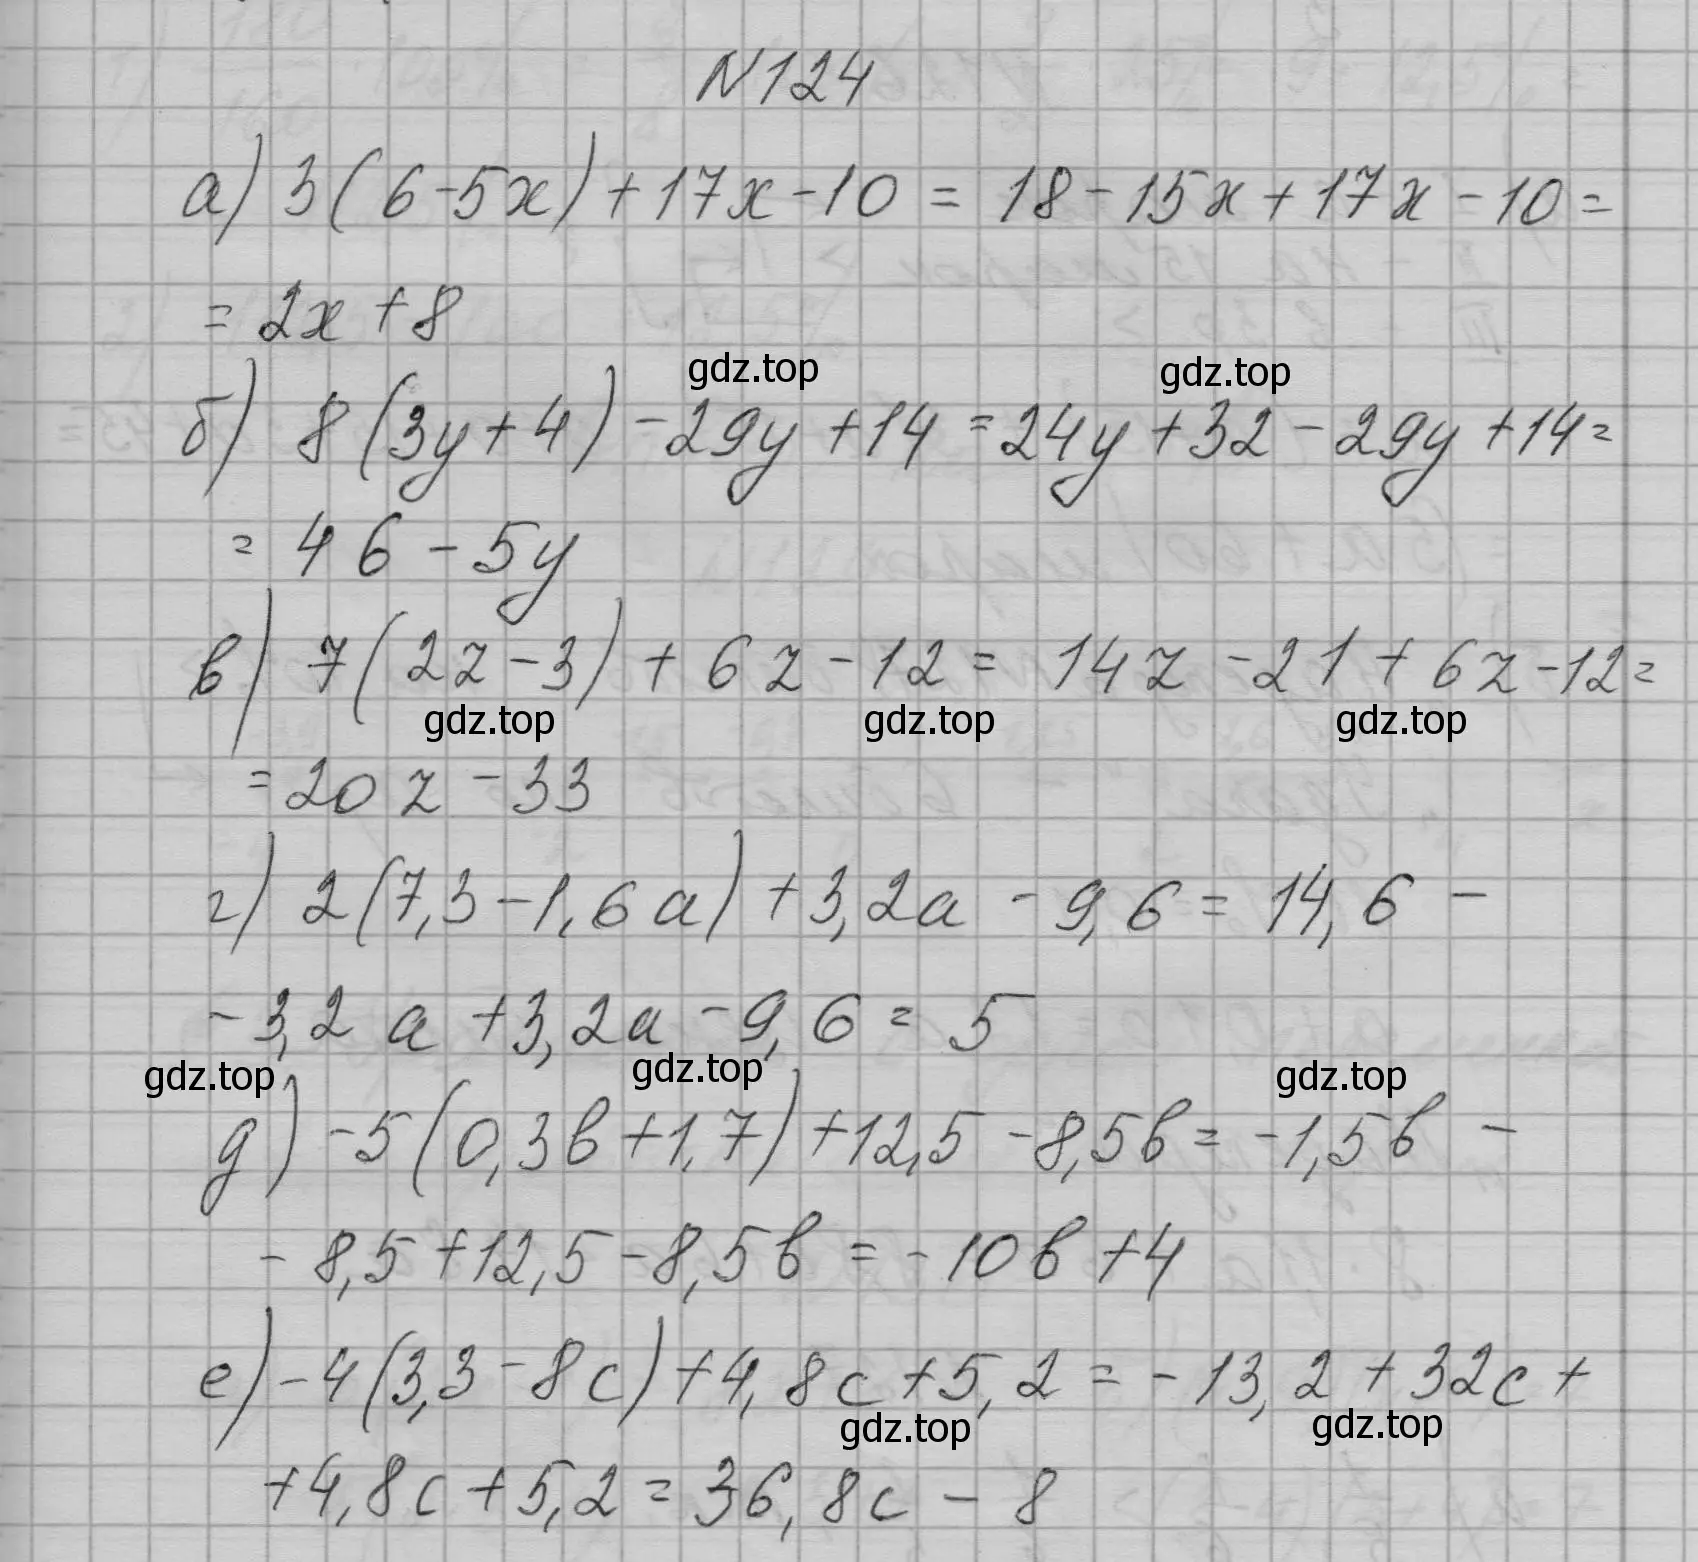 N124
а) 3(6-5x)+17x-10 = 18-15x+17x-10=
= 2x+8
gdz.top gdz.top
б) 8(3y+4)-29y+14=24y+32-29y+14=
= 46-5y
в) 7(2z-3)+6z-12= 14z-21+6z-12=
gdz.top gdz.top gdz.top
=20z-33
г) 2(7,3-1,6a)+3,2a-9,6=14,6-
-3,2a+3,2a-9,6=5
gdz.top gdz.top gdz.top
д) -5(0,3b+1,7)+12,5-8,5b=-1,5b-
-8,5+12,5-8,5b=-10b+4
е) -4(3,3-8c)+4,8c+5,2=-13,2+32c+
gdz.top gdz.top
+4,8c+5,2=36,8c-8